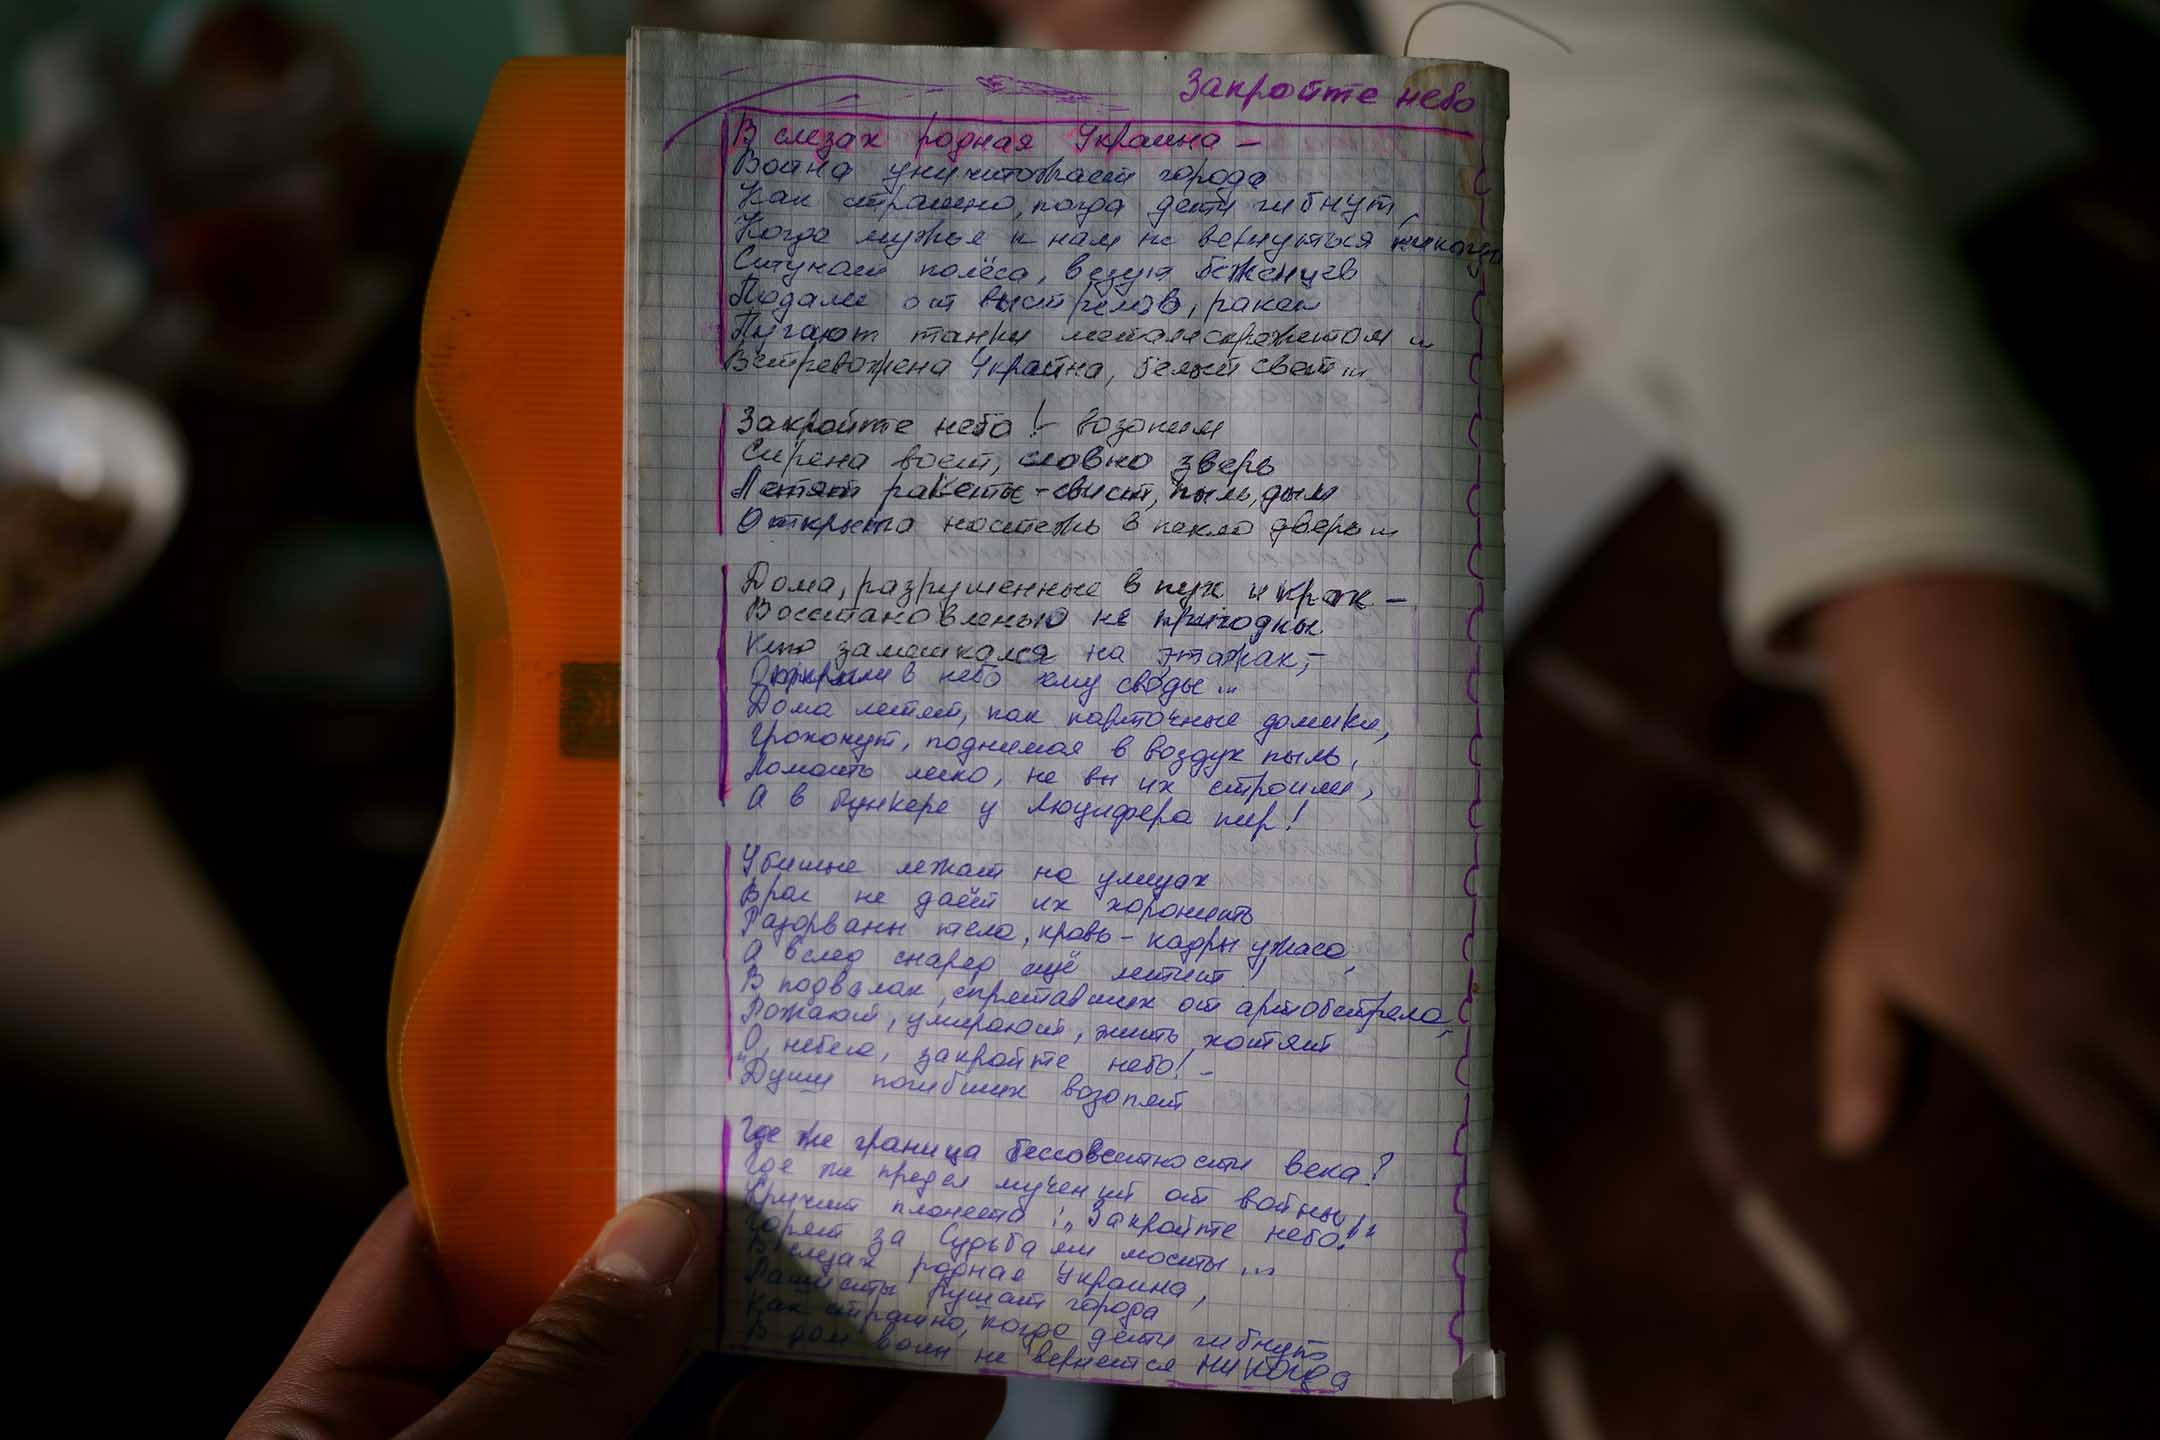 Закройте небо
В слезах родная Украина –
Война уничтожает города
Как страшно, когда дети гибнут,
Когда мужья к нам не вернуться никогда
Стучат колёса, везут беженцев
Подале от выстрелов, ракет
Пугают танки металлоскрежетом ...
Встревожена Украйна, белый свет ...
Закройте небо! – возопим
Сирена воет, словно зверь
Летят ракеты – свист, пыль, дым
Открыта настежь в пекло дверь ...
Дома, разрушенные в пух и прах –
Восстановленью не пригодны.
Кто замешкался на этажах, –
Открыли в небо ему своды ...
Дома летят, как карточные домики,
Грохочут, поднимая в воздух пыль,
Ломать легко, не вы их строили,
А в бункере у Люцифера пир!
Убитые лежат на улицах
Враг не даёт их хоронить
Разорваны тела, кровь – кадры ужаса,
А вслед снаряд ещё летит!
В подвалах, спрятавших от артобстрела,
Рожают, умирают, жить хотят
"О, небеса, закройте небо! –
Души погибших возопят
Где же граница бессовестности века?
Где же предел мучений от войны
Кричит планета: „Закройте небо!!"
Горят за Судьбами мосты ...
В слезах родная Украина,
Рашисты рушат города
Как страшно, когда дети гибнут
В дом воин не вернется никогда